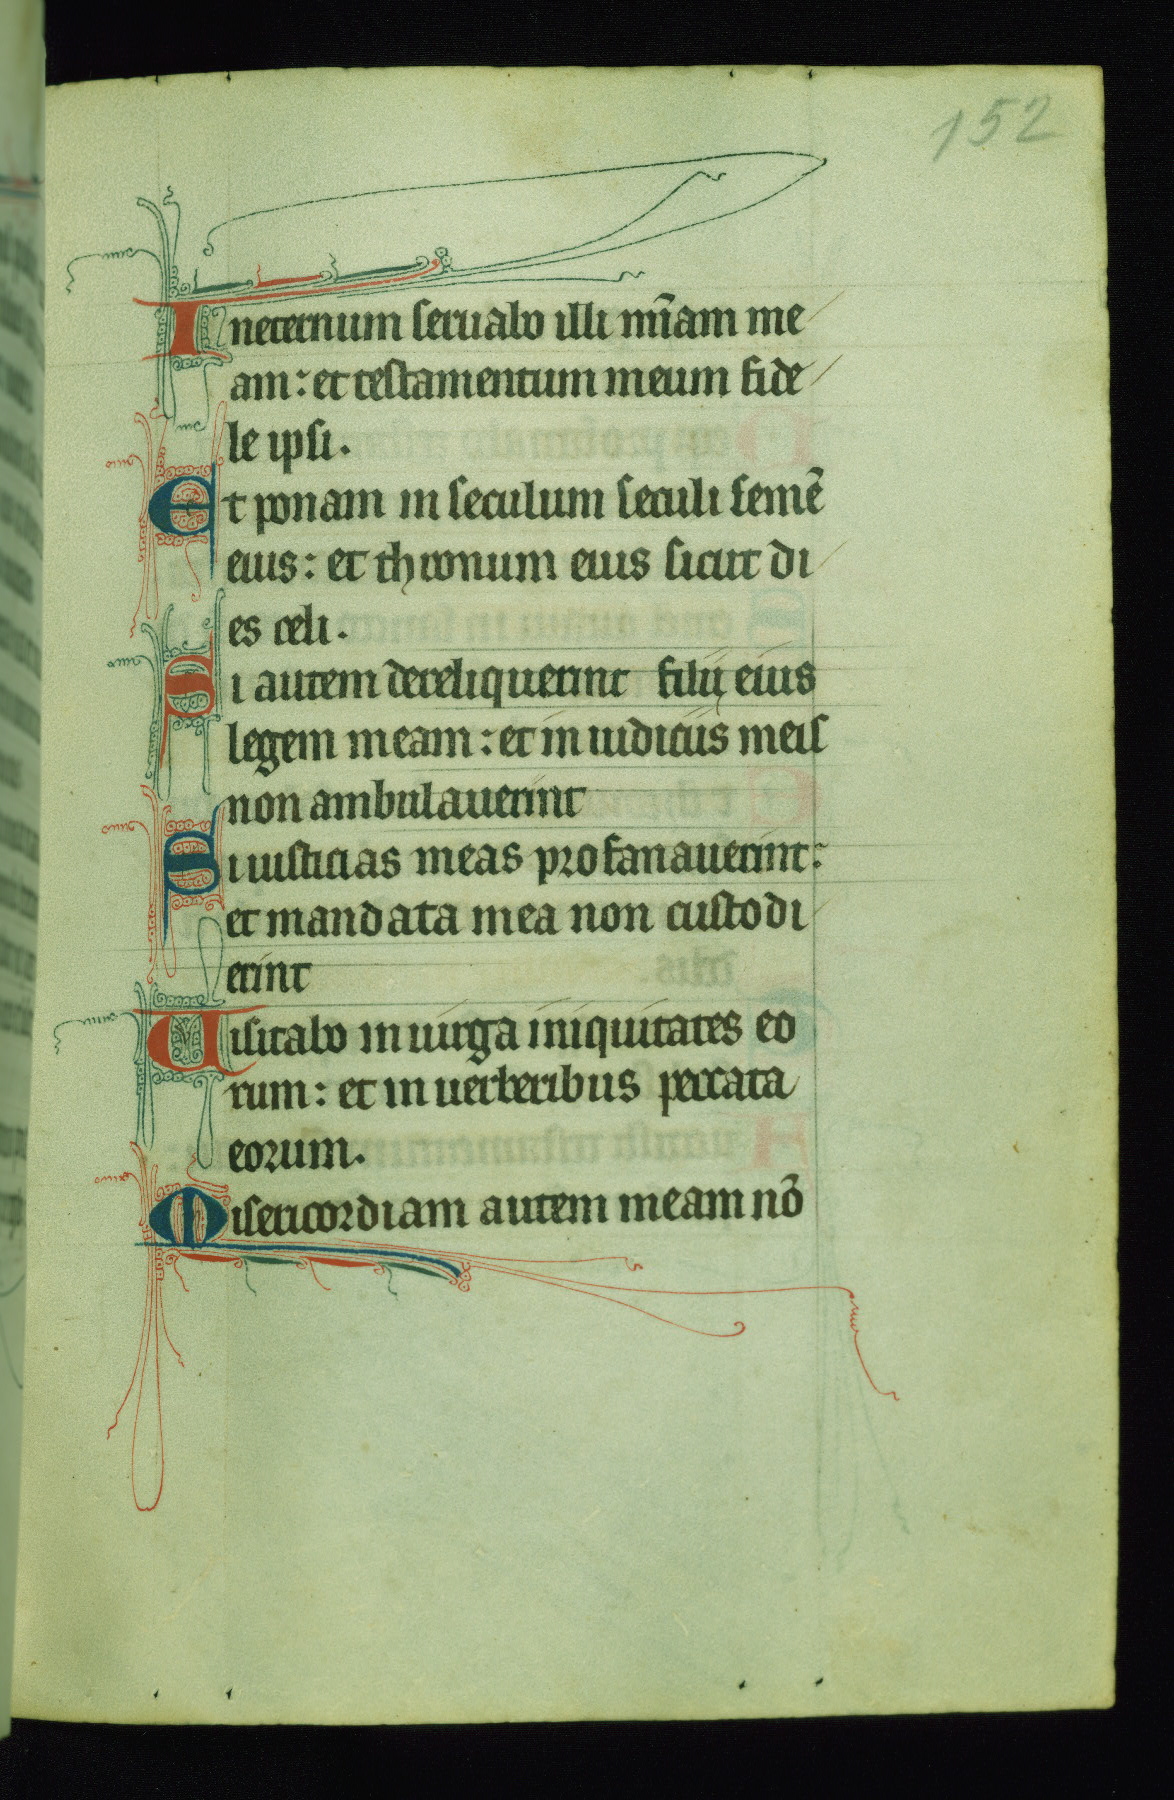 152
In eternum seruabo illi mi̅am me
am: et testamentum meum fide
le ipsi.
Et ponam in seculum seculi seme̅
eius: et thronum eius sicut di
es celi.
Si autem dereliquerint filii eius
legem meam: et in iudiciis meis
non ambulauerint
Si iusticias meas profanauerint:
et mandata mea non custodi
erint
Uisitabo in uirga iniquitates eo
rum: et in uerberibus peccata
eorum.
Misericordiam autem meam no̅